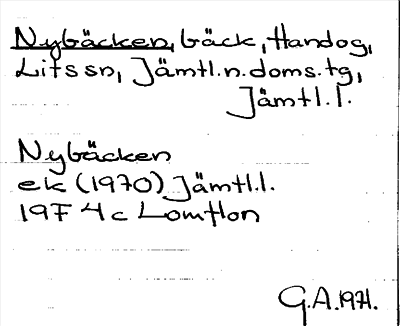 Nybäcken, bäck, Handog,
Lits sn, Jämtl.n.doms.tg,
Jämtl.l.
Nybäcken
ek (1970) Jämtl.l.
19F 4c Lomtton
G.A.1971.